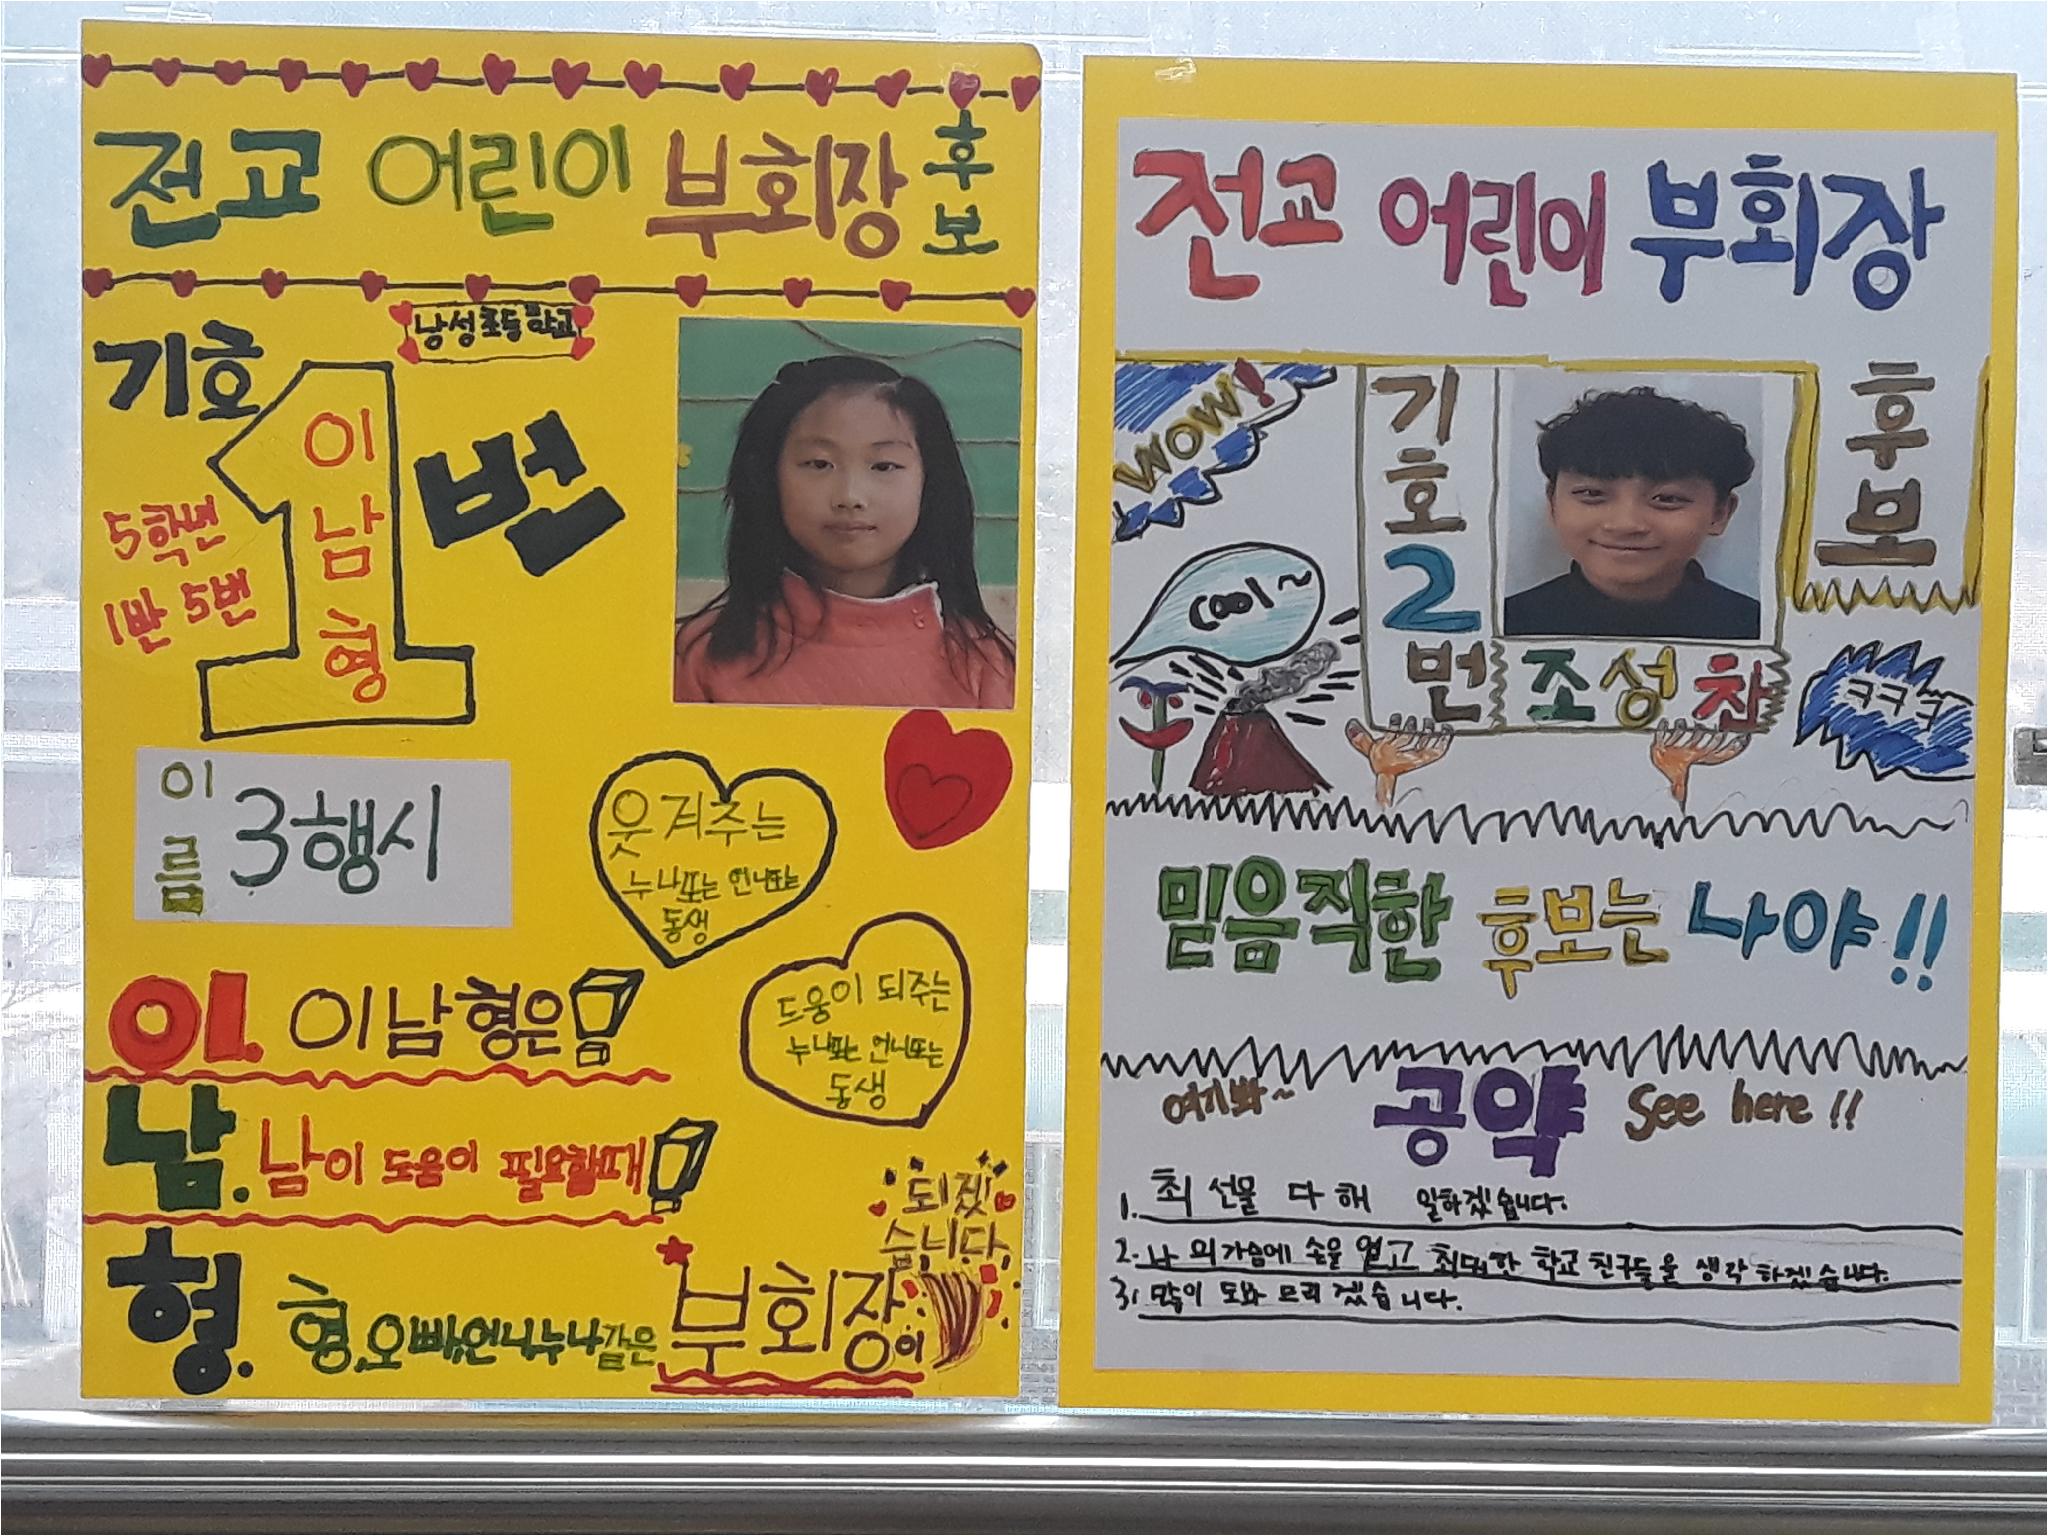 전교 어린이 부회장 후보
기호 1번
이남형
남성초등학교
5학년
1반 5번
이름 3행시
웃겨주는
누나또는 언니또는
동생
도움이 되주는
누나또는 언니또는
동생
이. 이남형은
남. 남이 도움이 필요할때
형. 형,오빠,언니,누나같은 부회장이
되겠
습니다.
전교 어린이 부회장
후보
WOW!
기호 2번 조성찬
Cool~
ㅋㅋㅋ
믿음직한 후보는 나야!!
여기봐~ 공약 See here!!
1. 최선을 다해 일하겠습니다.
2. 나의 가슴에 손을 얹고 최대한 학교 친구들을 생각하겠습니다.
3. 많이 도와 드리겠습니다.